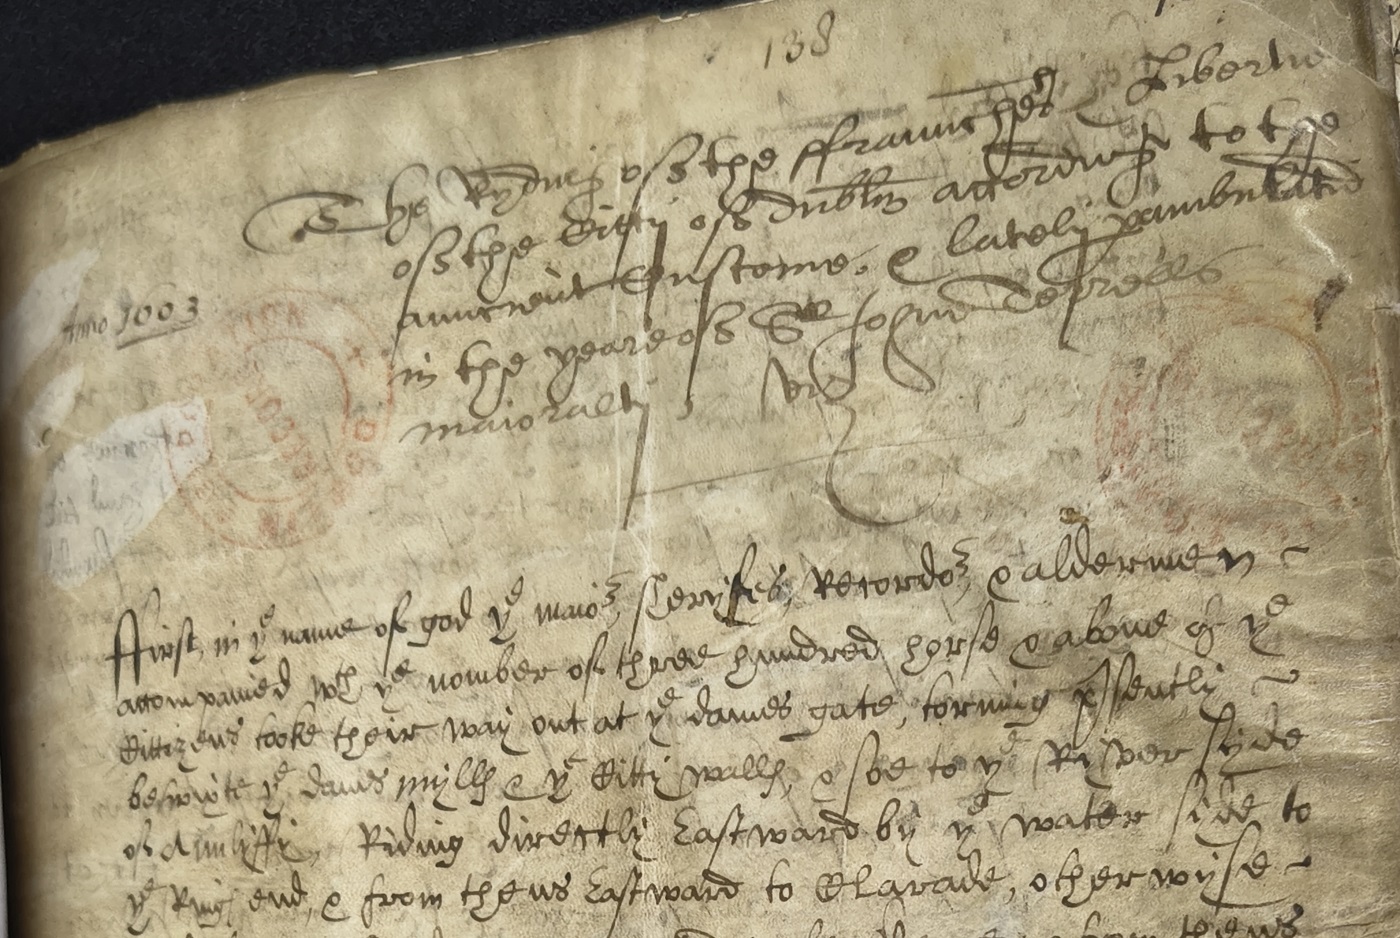 138
The Rydinge of the ffraunches & Libertie
of the Citty of dublin accordinge to the
auncient Custome, & lately pambulated
in the yeare of Sr John Terrells
Anno 1603
maioraltj
ffirst, in ye name of god ye maior, Sheryfes, Recordor, & aldermen
accompanied wth ye nomber of three hundred horse & above of ye
Cittizens tooke their way out at ye dames gate, torning psently
betwixte ye dames mylls & ye Citty walls, & soe to ye River syde
of Anliffy, Riding directly Eastward by ye water side to
ye Rings end, & from thens Eastward to Clarade, otherwyse
from thens